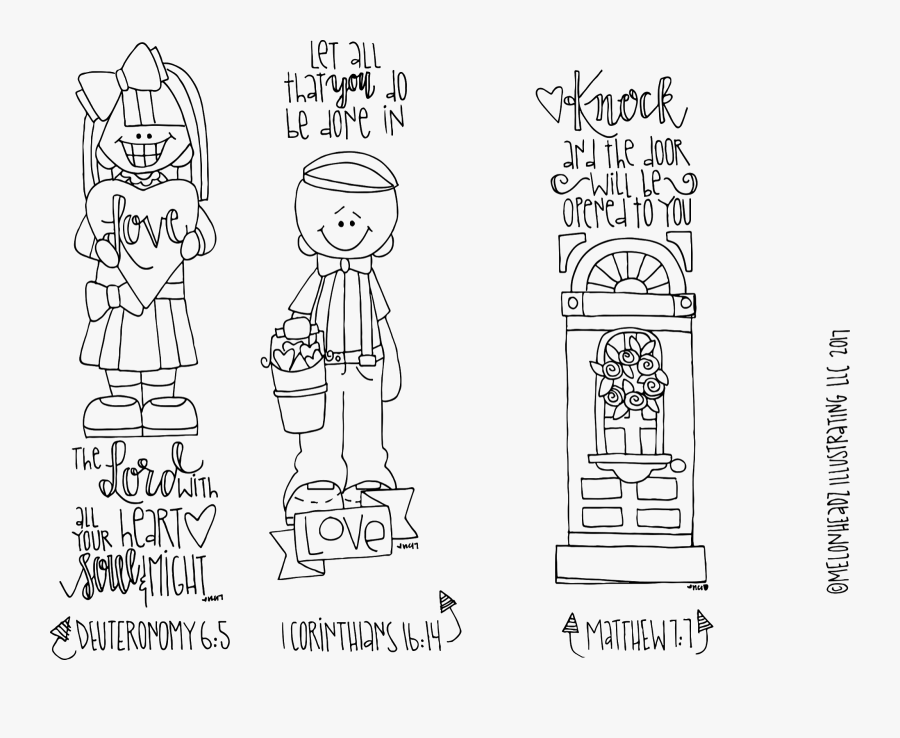 love
The Lord with
all
your heart
soul & might
Deuteronomy 6:5
Let all
that you do
be done in
Love
1 Corinthians 16:14
Knock
and the door
will be
opened to you
Matthew 7:7
©MELONHEADZ ILLUSTRATING LLC 2017